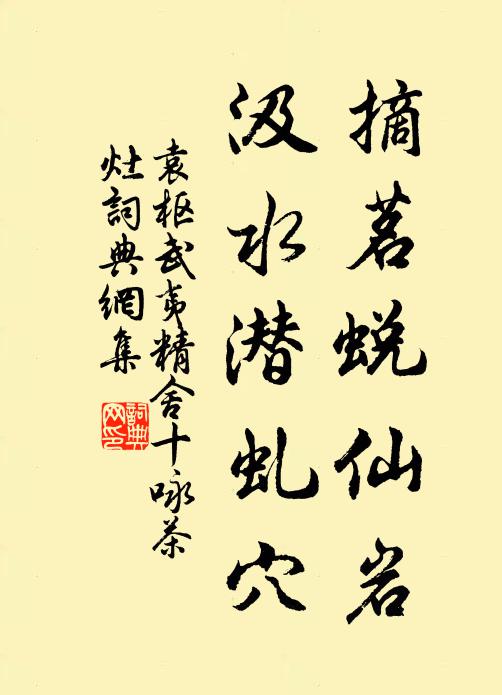 摘茗蜕仙岩
汲水潜虬穴
袁枢武夷精舍十咏茶
灶词典網集
詞典网印